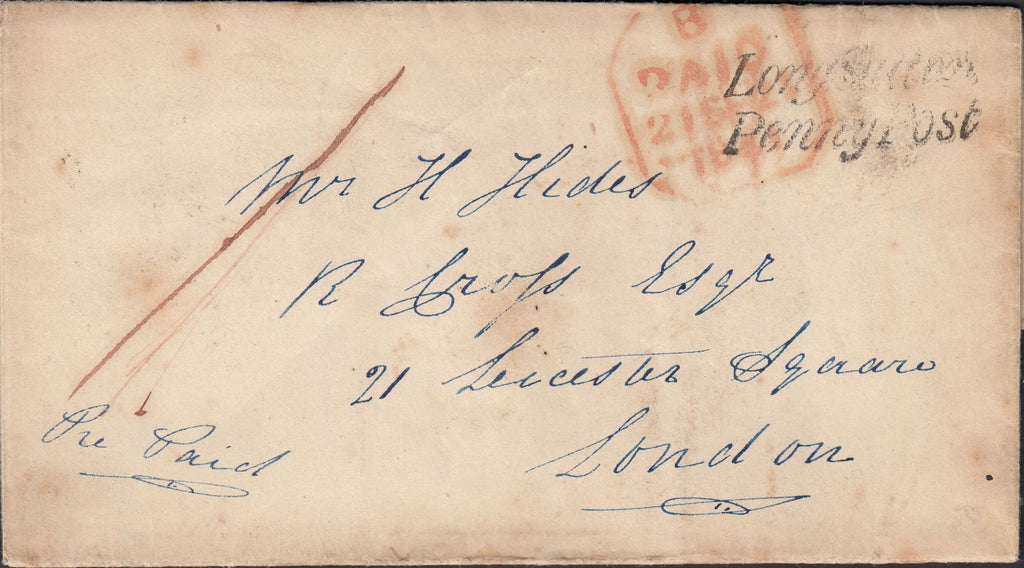 B
PAID
Penny Post
Mr H Hides
R Croſs Esqr
21 Leicester Square
London
Pre Paid